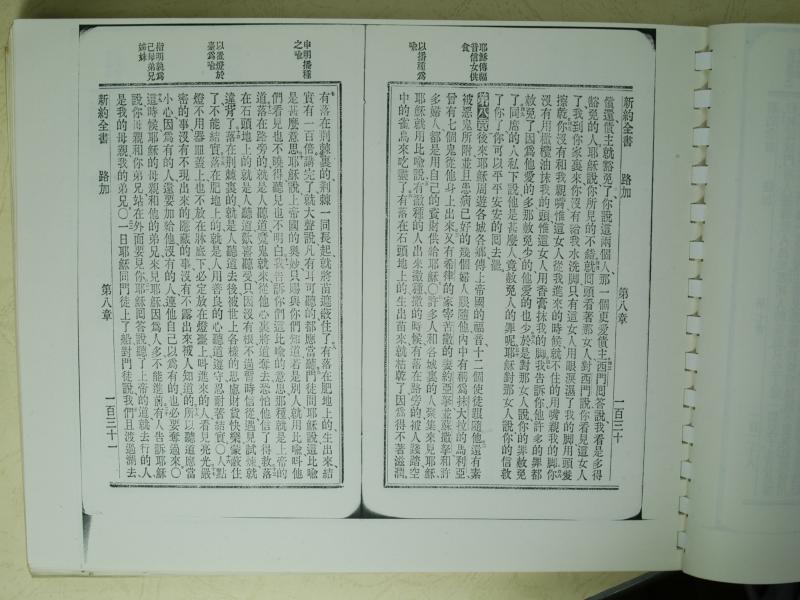 新約全書 路加 第八章 一百三十
償還債主就豁免了你說這兩個人那一個更愛債主西門囘答說我看是多得
豁免的人耶穌說你所見的不錯就囘頭看著那女人對西門說你看見這女人
了我到你家裏來你沒有給我水洗脚只有這女人用眼淚濕了我的脚用頭髮
擦乾你沒有和我親嘴惟這女人從我進來的時候就不住的用嘴親我的脚你
沒有用橄欖油抹我的頭惟這女人用香膏抹我的脚我告訴你他許多的罪都
赦免了因爲他愛的多那赦免少的他愛的也少於是對那女人說你的罪赦免
了同席的人私下說他是甚麽人竟赦免人的罪呢耶穌對那女人說你的信救
了你了你可以平平安安的囘去罷
耶穌傳福
音信女供
食
第八章後來耶穌周遊各城各鄉傳上帝的福音十二個使徒跟隨他還有素
被惡鬼所附並且患病已好的幾個婦人跟隨他內中有稱爲抹大拉的馬利亞
曾有七個鬼從他身上出來又有希律的家宰苦撒的妻約亞拏並蘇撒拏和許
多婦人都是用自己的貲財供給耶穌○許多人和各城裏的人聚集來見耶穌
以播種爲
喩
耶穌就用比喩說有撒種的人出來撒種撒的時候有落在路旁的被人踐踏空
中的雀鳥來吃盡了有落在石頭地上的生出苗來就枯乾了因爲得不著滋潤
有落在荆棘裏的荆棘一同長起就將苗遮蔽住了有落在肥地上的生出來結
實有一百倍講完了就大聲說凡有耳可聽的都應當聽門徒問耶穌說這比喩
申明播種
之喩
是甚麽意思耶穌說上帝國的奥妙只賜與你們知道若是別人就用比喩叫他
們看見也不曉得聽見也不明白我告訴你們這比喩的意思那種就是上帝的
道落在路旁的就是人聽道魔鬼就來從他心裏將道奪去恐怕他信了得救落
在石頭地上的就是人聽道歡喜聽受只因沒有根不過暫時信從遇見試煉就
違背了落在荆棘裏的就是人聽道去後被世上各樣的思慮財貨快樂蒙蔽住
了不能結實落在肥地上的就是人用善良的心聽道遵守忍耐著結實○人點
以置燈於
臺爲喩
燈不用器皿蓋上也不放在牀底下必定放在燈臺上叫進來的人看見亮光嚴
密的事沒有不現出來的隱藏的事沒有不露出來被人知道的所以聽道應當
小心因爲有的人還要加給他沒有的人連他自己以爲有的也必要奪過來○
指明孰爲
己母弟兄
姊妹
這時候耶穌的母親和他的弟兄來見耶穌因爲人多不能進前有人告訴耶穌
說你母親和你弟兄站在外面要見你耶穌囘答說聽了上帝的道就去行的人
是我的母親我的弟兄○一日耶穌同門徒上了船對門徒說我們且渡過湖去
新約全書 路加 第八章 一百三十一